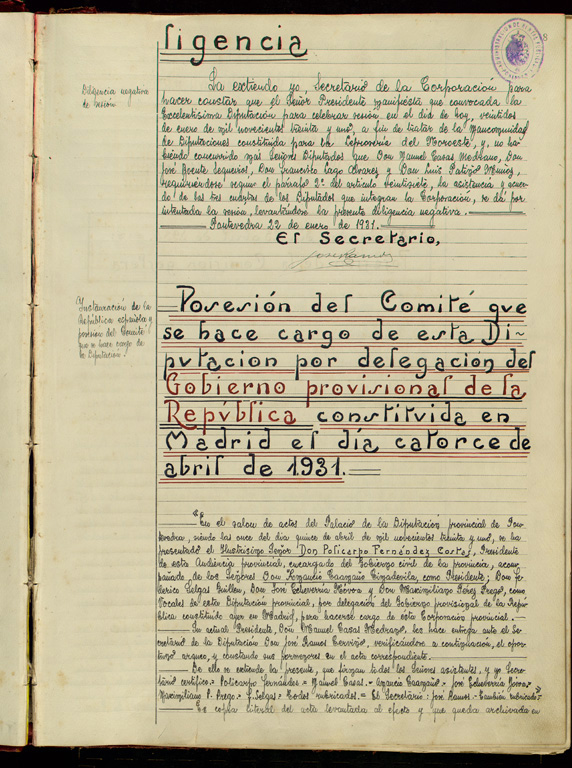 ligencia
Diligencia negativa
de sesión
La extiendo yo, Secretario de la Corporación para
hacer constar que el Señor Presidente manifiesta que convocada la
Excelentísima Diputación para celebrar sesión en el día de hoy, veintidos
de enero de mil novecientos treinta y uno, a fin de tratar de la Mancomunidad
de Diputaciones constituida para la Leprosería del Noroeste, y, no ha-
biendo concurrido más Señores Diputados que Don Manuel Casas Medrano, Don
José Puente Sequeiros, Don Francisco Lago Alvarez y Don Luis Patiño Munios,
requiriéndose segun el párrafo 2º del artículo veintisiete, la asistencia y acuer-
do de los tres cuartos de los Diputados que integran la Corporación, se dá por
intentada la sesión, levantándose la presente diligencia negativa.
Pontevedra 22 de enero de 1931.
El Secretario,
José Ramos
Instauración de la
República española y
posesión del Comité
que se hace cargo de
la Diputación.
Posesión del Comité que
se hace cargo de esta Di-
putación por delegación del
Gobierno provisional de la
República constituida en
Madrid el día catorce de
abril de 1931.
"En el salon de actos del Palacio de la Diputación provincial de Pon-
tevedra, siendo las once del día quince de abril de mil novecientos treinta y uno, se ha
presentado el Ilustrísimo Señor Don Policarpo Fernández Costas, Presidente
de esta Audiencia provincial, encargado del Gobierno civil de la provincia, acom-
pañado de los Señores Don Amancio Caamaño Cimadevila, como Presidente; Don Fe-
derico Selgas Guillen, Don José Echeverría Nóvoa y Don Maximiliano Pérez Prego, como
Vocales de esta Diputación provincial, por delegación del Gobierno provisional de la Repú-
blica constituido ayer en Madrid, para hacerse cargo de esta Corporación provincial.
Su actual Presidente, Don Manuel Casas Medrano, les hace entrega ante el Se-
cretario de la Diputación Don José Ramos Cerviño, verificándose a continuación, el opor-
tuno arqueo, y constando sus pormenores en el acta correspondiente.
De ello se extiende la presente, que firman todos los Señores asistentes, y yo Secre-
tario certifico = Policarpo Fernández = Manuel Casas = Amancio Caamaño = José Echeverría Nóvoa =
Maximiliano P. Prego = F. Selgas = Todos rubricados = El Secretario: José Ramos = También rubricado".
Es copia literal del acta levantada al efecto y que queda archivada en